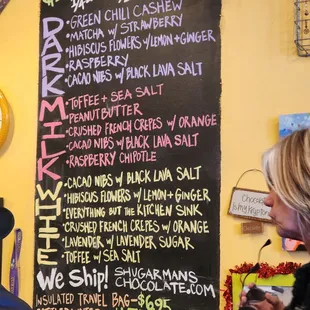 DARK
• GREEN CHILI CASHEW
• MATCHA W/ STRAWBERRY
• HIBISCUS FLOWERS W/ LEMON + GINGER
• RASPBERRY
• CACAO NIBS W/ BLACK LAVA SALT
MILK
• TOFFEE + SEA SALT
• PEANUT BUTTER
• CRUSHED FRENCH CREPES W/ ORANGE
• CACAO NIBS W/ BLACK LAVA SALT
• RASPBERRY CHIPOTLE
WHITE
• CACAO NIBS W/ BLACK LAVA SALT
• HIBISCUS FLOWERS W/ LEMON + GINGER
• EVERYTHING BUT THE KITCHEN SINK
• CRUSHED FRENCH CREPES W/ ORANGE
• LAVENDER W/ LAVENDER SUGAR
• TOFFEE W/ SEA SALT
We Ship! SHUGARMANS
CHOCOLATE.COM
INSULATED TRAVEL BAG - $6.95
Chocolate